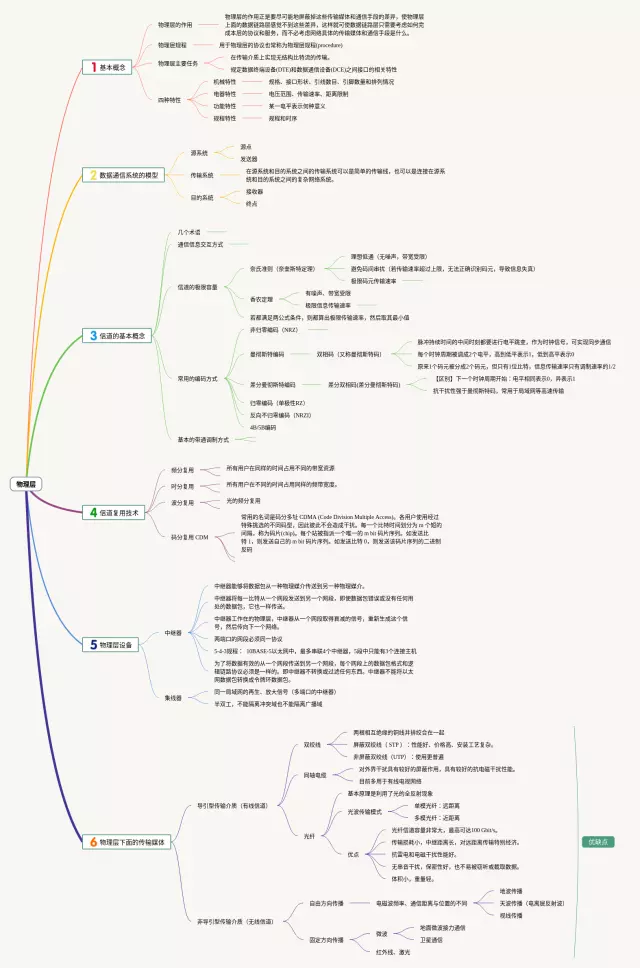 物理层
1 基本概念
物理层的作用
物理层的作用正是要尽可能地屏蔽掉这些传输媒体和通信手段的差异，使物理层
上面的数据链路层感觉不到这些差异，这样就可使数据链路层只需要考虑如何完
成本层的协议和服务，而不必考虑网络具体的传输媒体和通信手段是什么。
物理层规程
用于物理层的协议也常称为物理层规程(procedure)
物理层主要任务
在传输介质上实现无结构比特流的传输。
规定数据终端设备(DTE)和数据通信设备(DCE)之间接口的相关特性
四种特性
机械特性
规格、接口形状、引线数目、引脚数量和排列情况
电器特性
电压范围、传输速率、距离限制
功能特性
某一电平表示何种意义
规程特性
规程和时序
2 数据通信系统的模型
源系统
源点
发送器
传输系统
在源系统和目的系统之间的传输系统可以是简单的传输线，也可以是连接在源系
统和目的系统之间的复杂网络系统。
目的系统
接收器
终点
3 信道的基本概念
几个术语
通信信息交互方式
信道的极限容量
奈氏准则（奈奎斯特定理）
理想低通（无噪声，带宽受限）
避免码间串扰（若传输速率超过上限，无法正确识别码元，导致信息失真）
极限码元传输速率
香农定理
有噪声、带宽受限
极限信息传输速率
若都满足两公式条件，则都算出极限传输速率，然后取其最小值
常用的编码方式
非归零编码（NRZ）
曼彻斯特编码
双相码（又称曼彻斯特码）
脉冲持续时间的中间时刻都要进行电平跳变，作为时钟信号，可实现同步通信
每个时钟周期被调成2个电平，高到低平表示1，低到高平表示0
原来1个码元被分成2个码元，但只有1位比特，信息传输速率只有调制速率的1/2
差分曼彻斯特编码
差分双相码(差分曼彻斯特码)
【区别】下一个时钟周期开始：电平相同表示0，异表示1
抗干扰性强于曼彻斯特码，常用于局域网等高速传输
归零编码（单极性RZ）
反向不归零编码（NRZI）
4B/5B编码
基本的带通调制方式
4 信道复用技术
频分复用
所有用户在同样的时间占用不同的带宽资源
时分复用
所有用户在不同的时间占用同样的频带宽度。
波分复用
光的频分复用
码分复用 CDM
常用的名词是码分多址 CDMA (Code Division Multiple Access)。各用户使用经过
特殊挑选的不同码型，因此彼此不会造成干扰。每一个比特时间划分为 m 个短的
间隔，称为码片(chip)。每个站被指派一个唯一的 m bit 码片序列。如发送比
特 1，则发送自己的 m bit 码片序列。如发送比特 0，则发送该码片序列的二进制
反码
5 物理层设备
中继器
中继器能够将数据包从一种物理媒介传送到另一种物理媒介。
中继器将每一比特从一个网段发送到另一个网段，即使数据包错误或没有任何用
处的数据包，它也一样传送。
中继器工作在的物理层，中继器从一个网段取得衰减的信号，重新生成这个信
号，然后传向下一个网络。
两端口的网段必须同一协议
5-4-3规程： 10BASE-5以太网中，最多串联4个中继器，5段中只能有3个连接主机
为了将数据有效的从一个网段传送到另一个网段，每个网段上的数据包格式和逻
辑链路协议必须是一样的。即中继器不转换或过滤任何东西。中继器不能将以太
网数据包转换成令牌环数据包。
集线器
同一局域网的再生、放大信号（多端口的中继器）
半双工，不能隔离冲突域也不能隔离广播域
6 物理层下面的传输媒体
导引型传输介质（有线信道）
双绞线
两根相互绝缘的铜线并排绞合在一起
屏蔽双绞线（STP）：性能好、价格高、安装工艺复杂。
非屏蔽双绞线（UTP）：使用更普遍
同轴电缆
对外界干扰具有较好的屏蔽作用，具有较好的抗电磁干扰性能。
目前多用于有线电视网络
光纤
基本原理是利用了光的全反射现象
光波传输模式
单模光纤：远距离
多模光纤：近距离
优点
光纤信道容量非常大，最高可达100 Gbit/s。
传输损耗小，中继距离长，对远距离传输特别经济。
抗雷电和电磁干扰性能好。
无串音干扰，保密性好，也不易被窃听或截取数据。
体积小，重量轻。
非导引型传输介质（无线信道）
自由方向传播
电磁波频率、通信距离与位置的不同
地波传播
天波传播（电离层反射波）
视线传播
固定方向传播
微波
地面微波接力通信
卫星通信
红外线、激光
优缺点